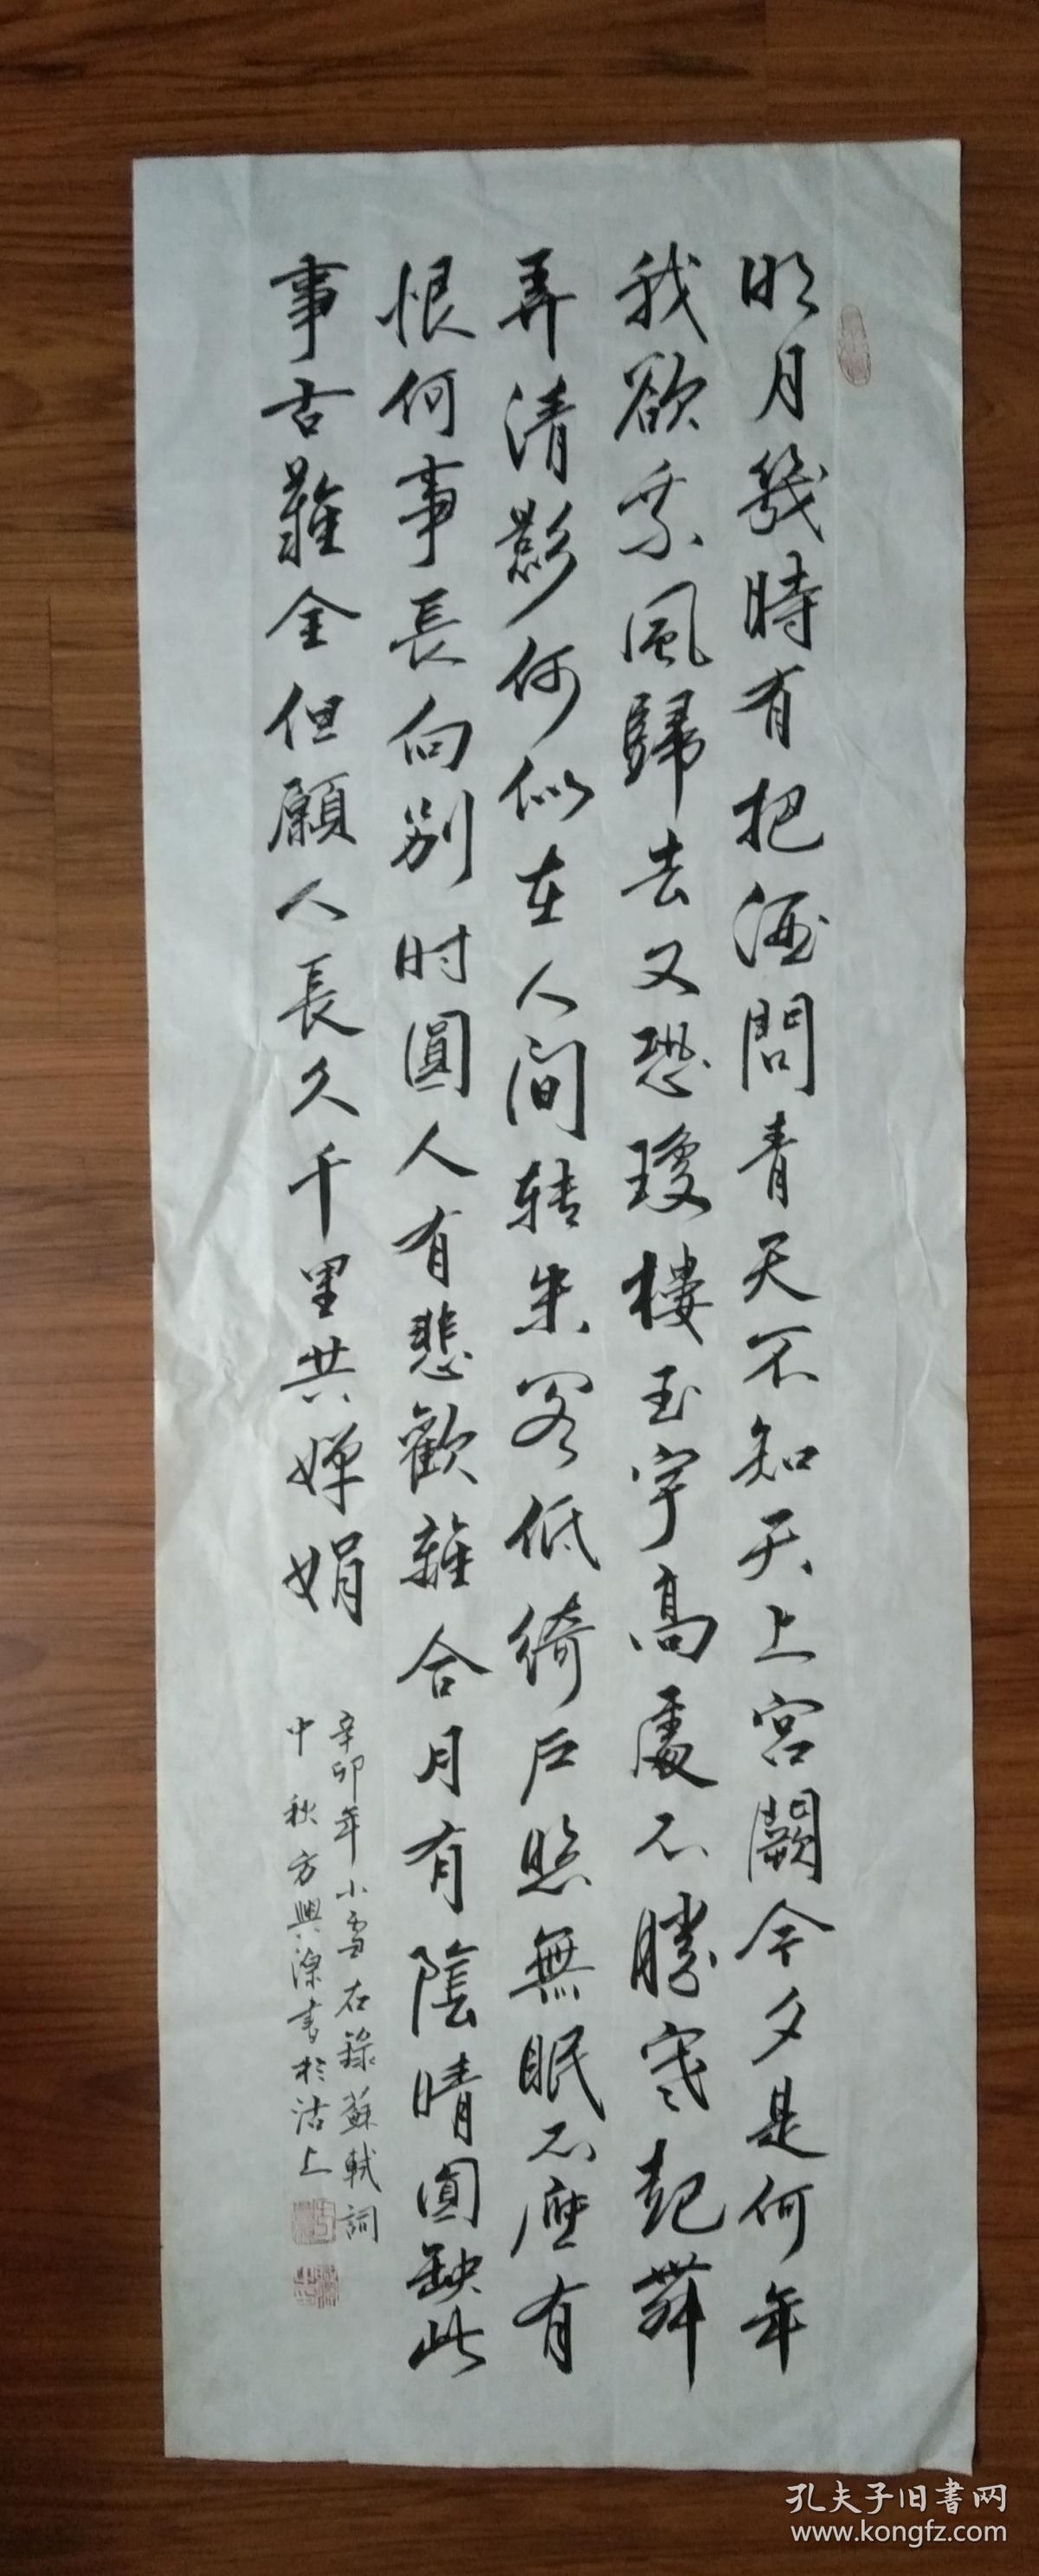 明月幾時有把酒問青天不知天上宮闕今夕是何年
我欲乘風歸去又恐瓊樓玉宇高處不勝寒起舞
弄清影何似在人间转朱阁低綺户照無眠不應有
恨何事長向别时圓人有悲歡離合月有陰晴圓缺此
事古難全但願人長久千里共嬋娟
辛卯年小雪右錄蘇軾詞
中秋方興深書於沽上
孔夫子旧書网
www.kongfz.com